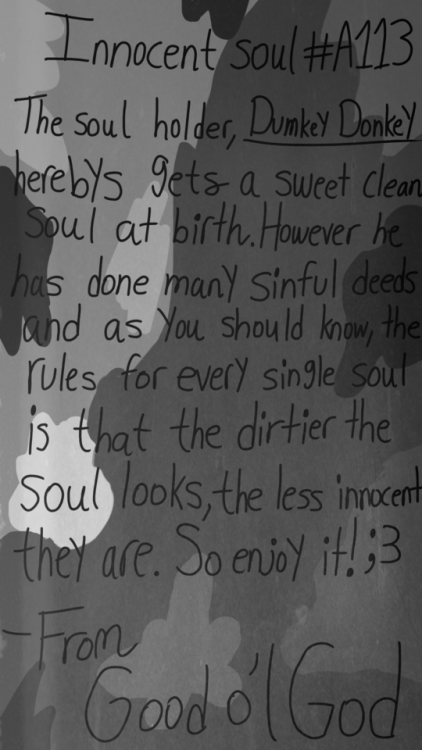 Innocent soul #A113
The soul holder, Dumkey Donkey
herebys gets a sweet clean
soul at birth. However he
has done many sinful deeds
and as you should know, the
rules for every single soul
is that the dirtier the
soul looks, the less innocent
they are. So enjoy it! ;3
-From
Good o'l God